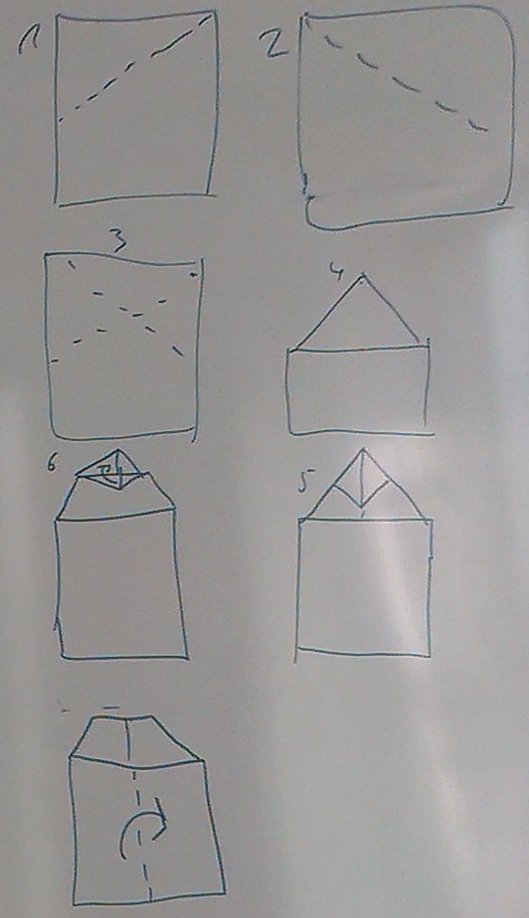 1
2
3
4
6
5